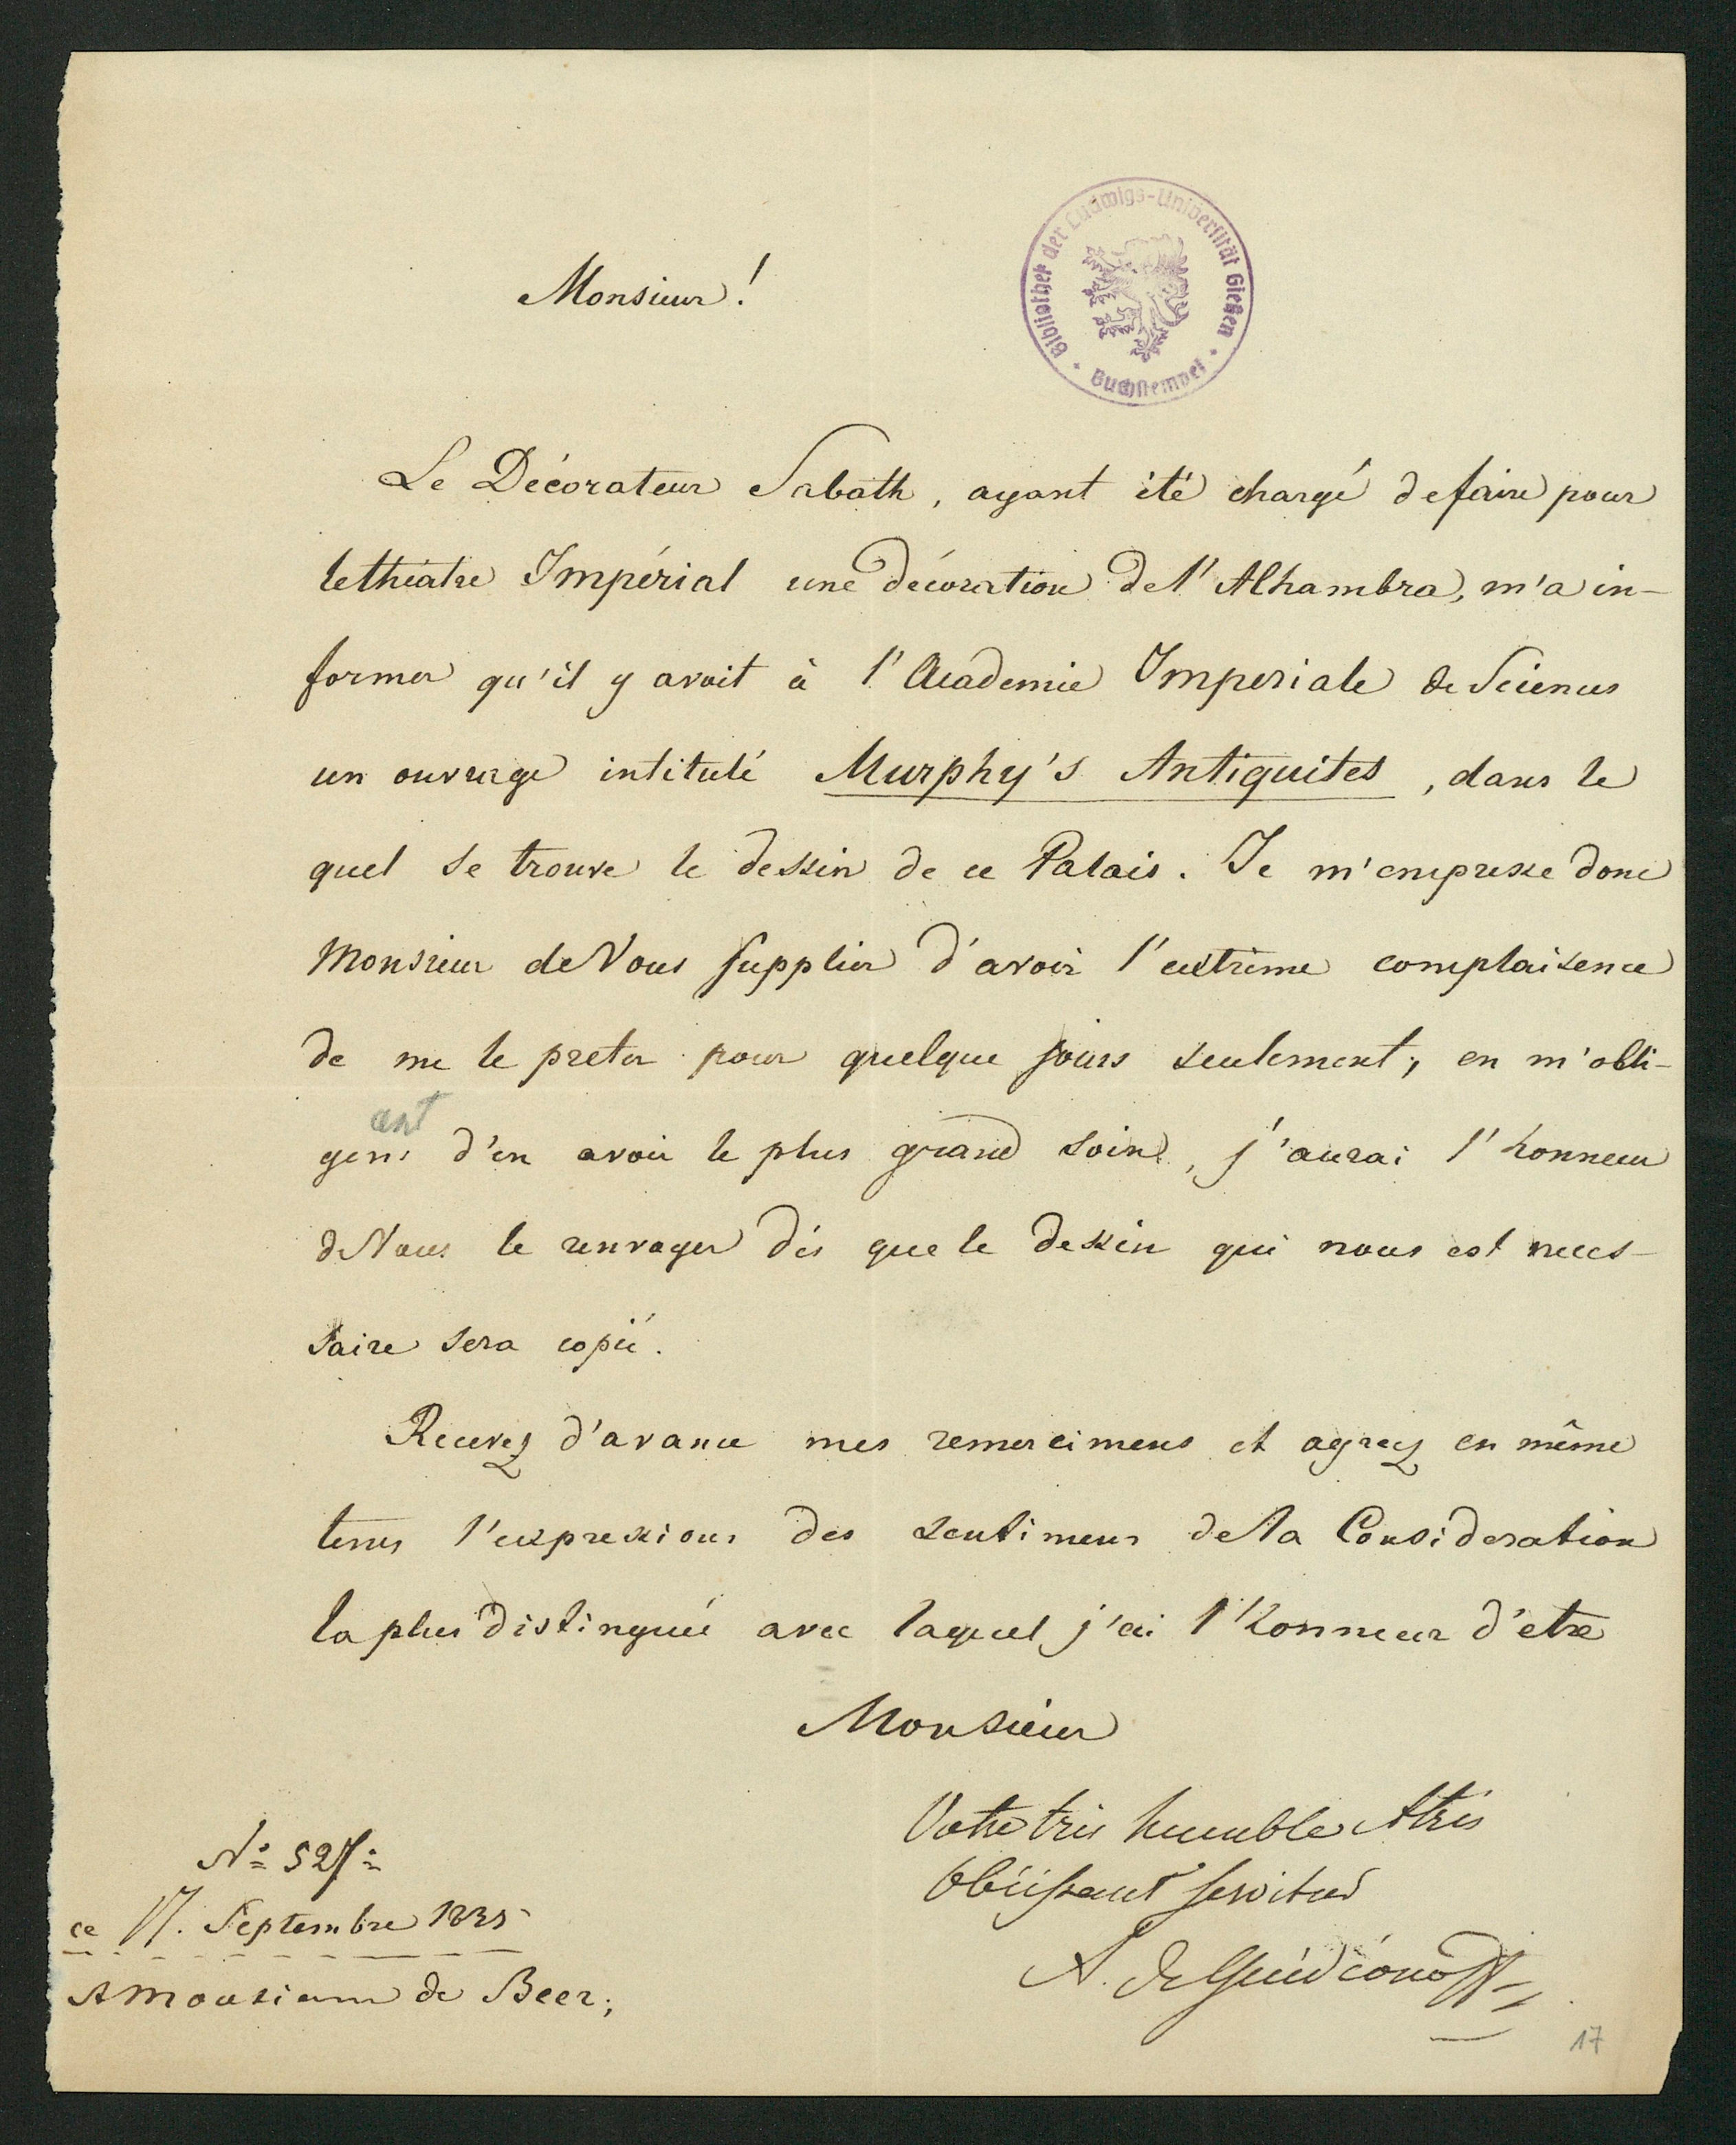 Bibliothek der Ludwigs-Universität Gießen
Buchstempel
Monsieur!
Le Décorateur Sabath, ayant été chargé de faire pour
le théatre Impérial une décoration de l'Alhambra, m'a in-
former qu'il y avoit à l'Academie Imperiale de Sciences
un ouvrage intitulé Murphy's Antiquites, dans le
quel se trouve le dessin de ce Palais. Je m'empresse donc
Monsieur de Vous supplier d'avoir l'extrème complaisence
de me le preter pour quelque jours seulement, en m'obli-
geant d'en avoir le plus grand soin, j'aurai l'honneur
de Vous le renvoyer dès que le dessin qui nous est neces-
saire sera copié.
Recevez d'avance mes remercimens et agreez en même
tems l'expressions des sentimens de la Consideration
la plus distinguée avec laquel j'ai l'honneur d'etre
Monsieur
Votre très humble & très
Obéissant serviteur
A. de Guédéonoff
№ 527
ce 17. Septembre 1835
A Monsieur de Beer;
17